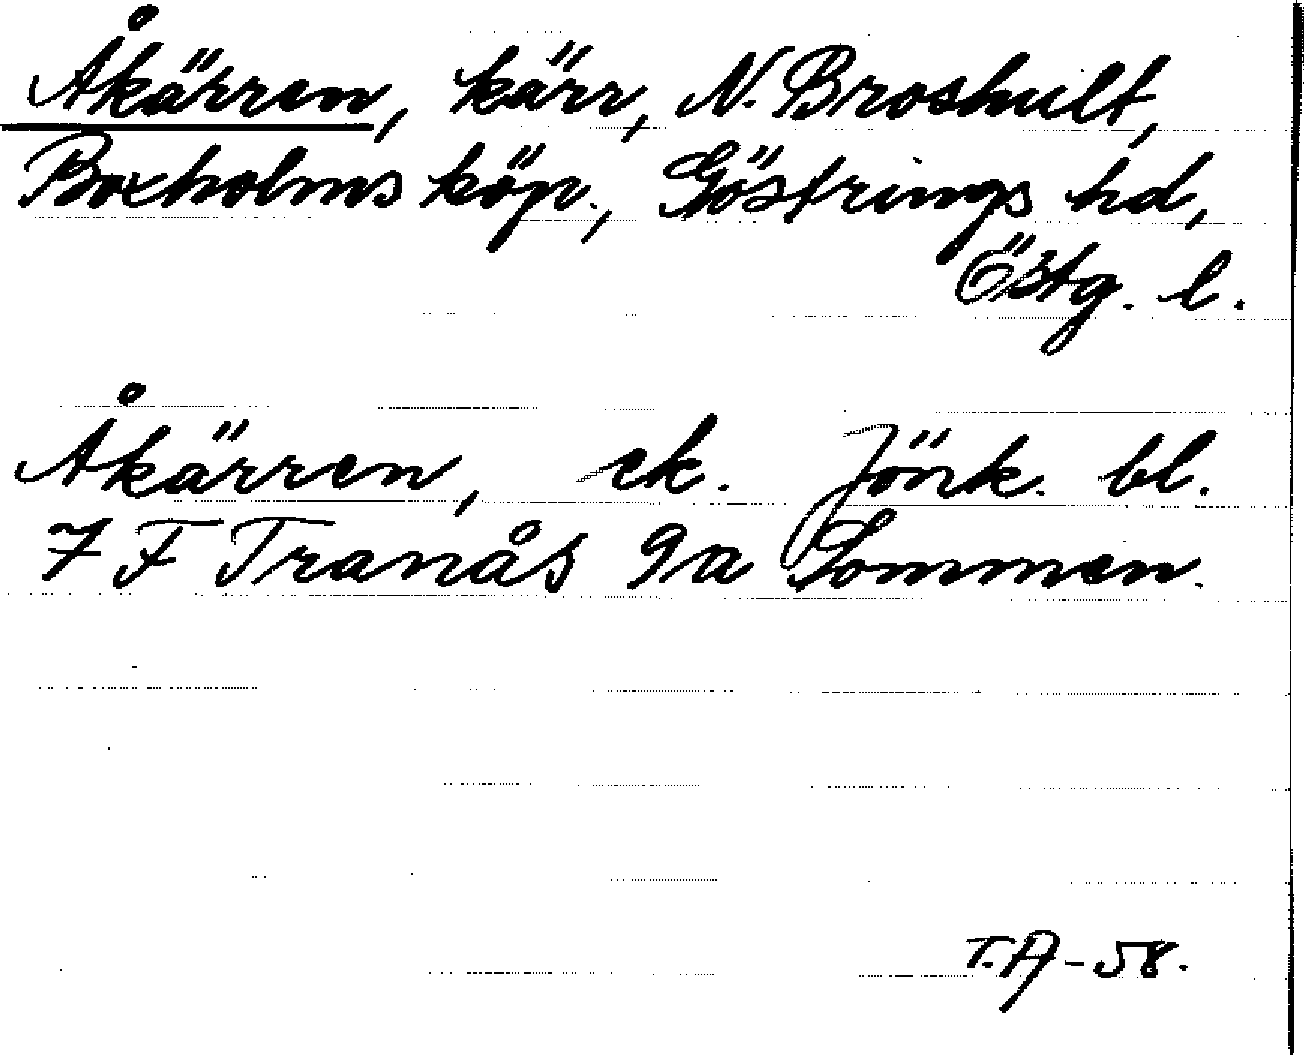 Åkärren, kärr, N. Broshult,
Boxholms köp., Göstrings hd,
Östg. l.
Åkärren, ek. Jönk. bl.
7 F Tranås 9a Sommen.
T.A-58.